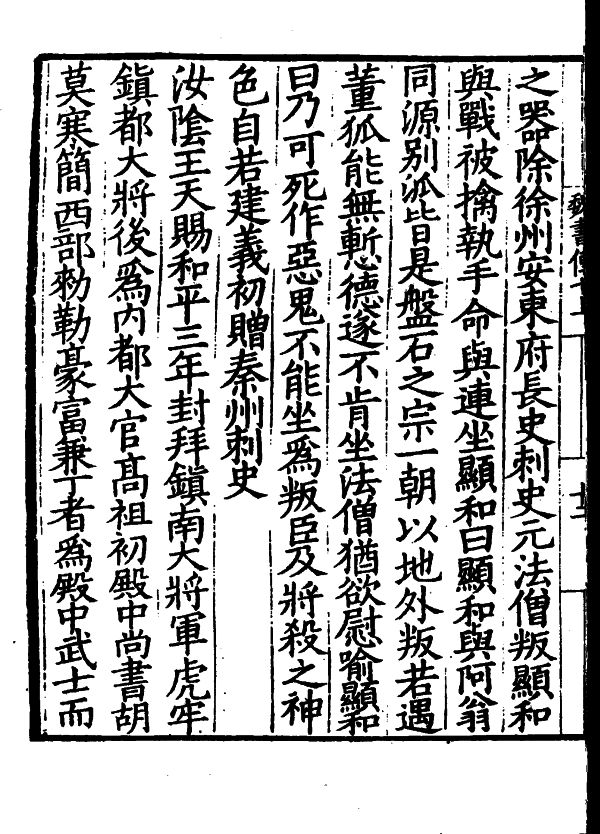 魏書傳七上
十二
之器除徐州安東府長史刺史元法僧叛顯和
與戰被擒執手命與連坐顯和曰顯和與阿翁
同源別派皆是盤石之宗一朝以地外叛若遇
董狐能無慙德遂不肯坐法僧猶欲慰喻顯和
曰乃可死作惡鬼不能坐爲叛臣及將殺之神
色自若建義初贈秦州刺史
汝陰王天賜和平三年封拜鎮南大將軍虎牢
鎮都大將後爲内都大官髙祖初殿中尚書胡
莫寒簡西部勑勒豪富兼丁者爲殿中武士而